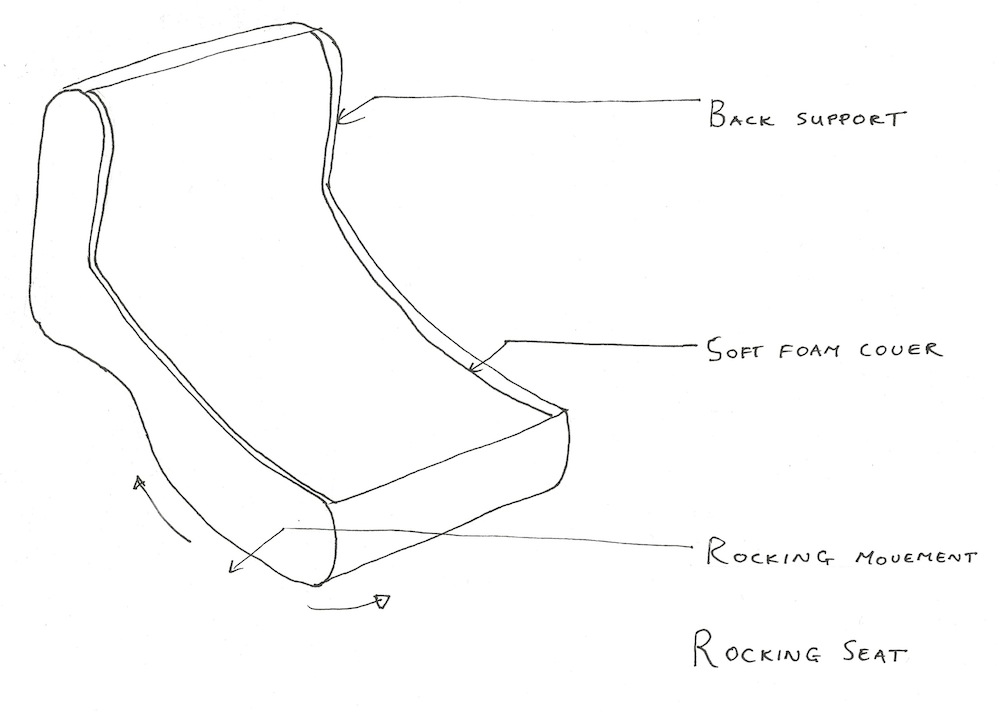 BACK SUPPORT
SOFT FOAM COVER
ROCKING MOVEMENT
ROCKING SEAT